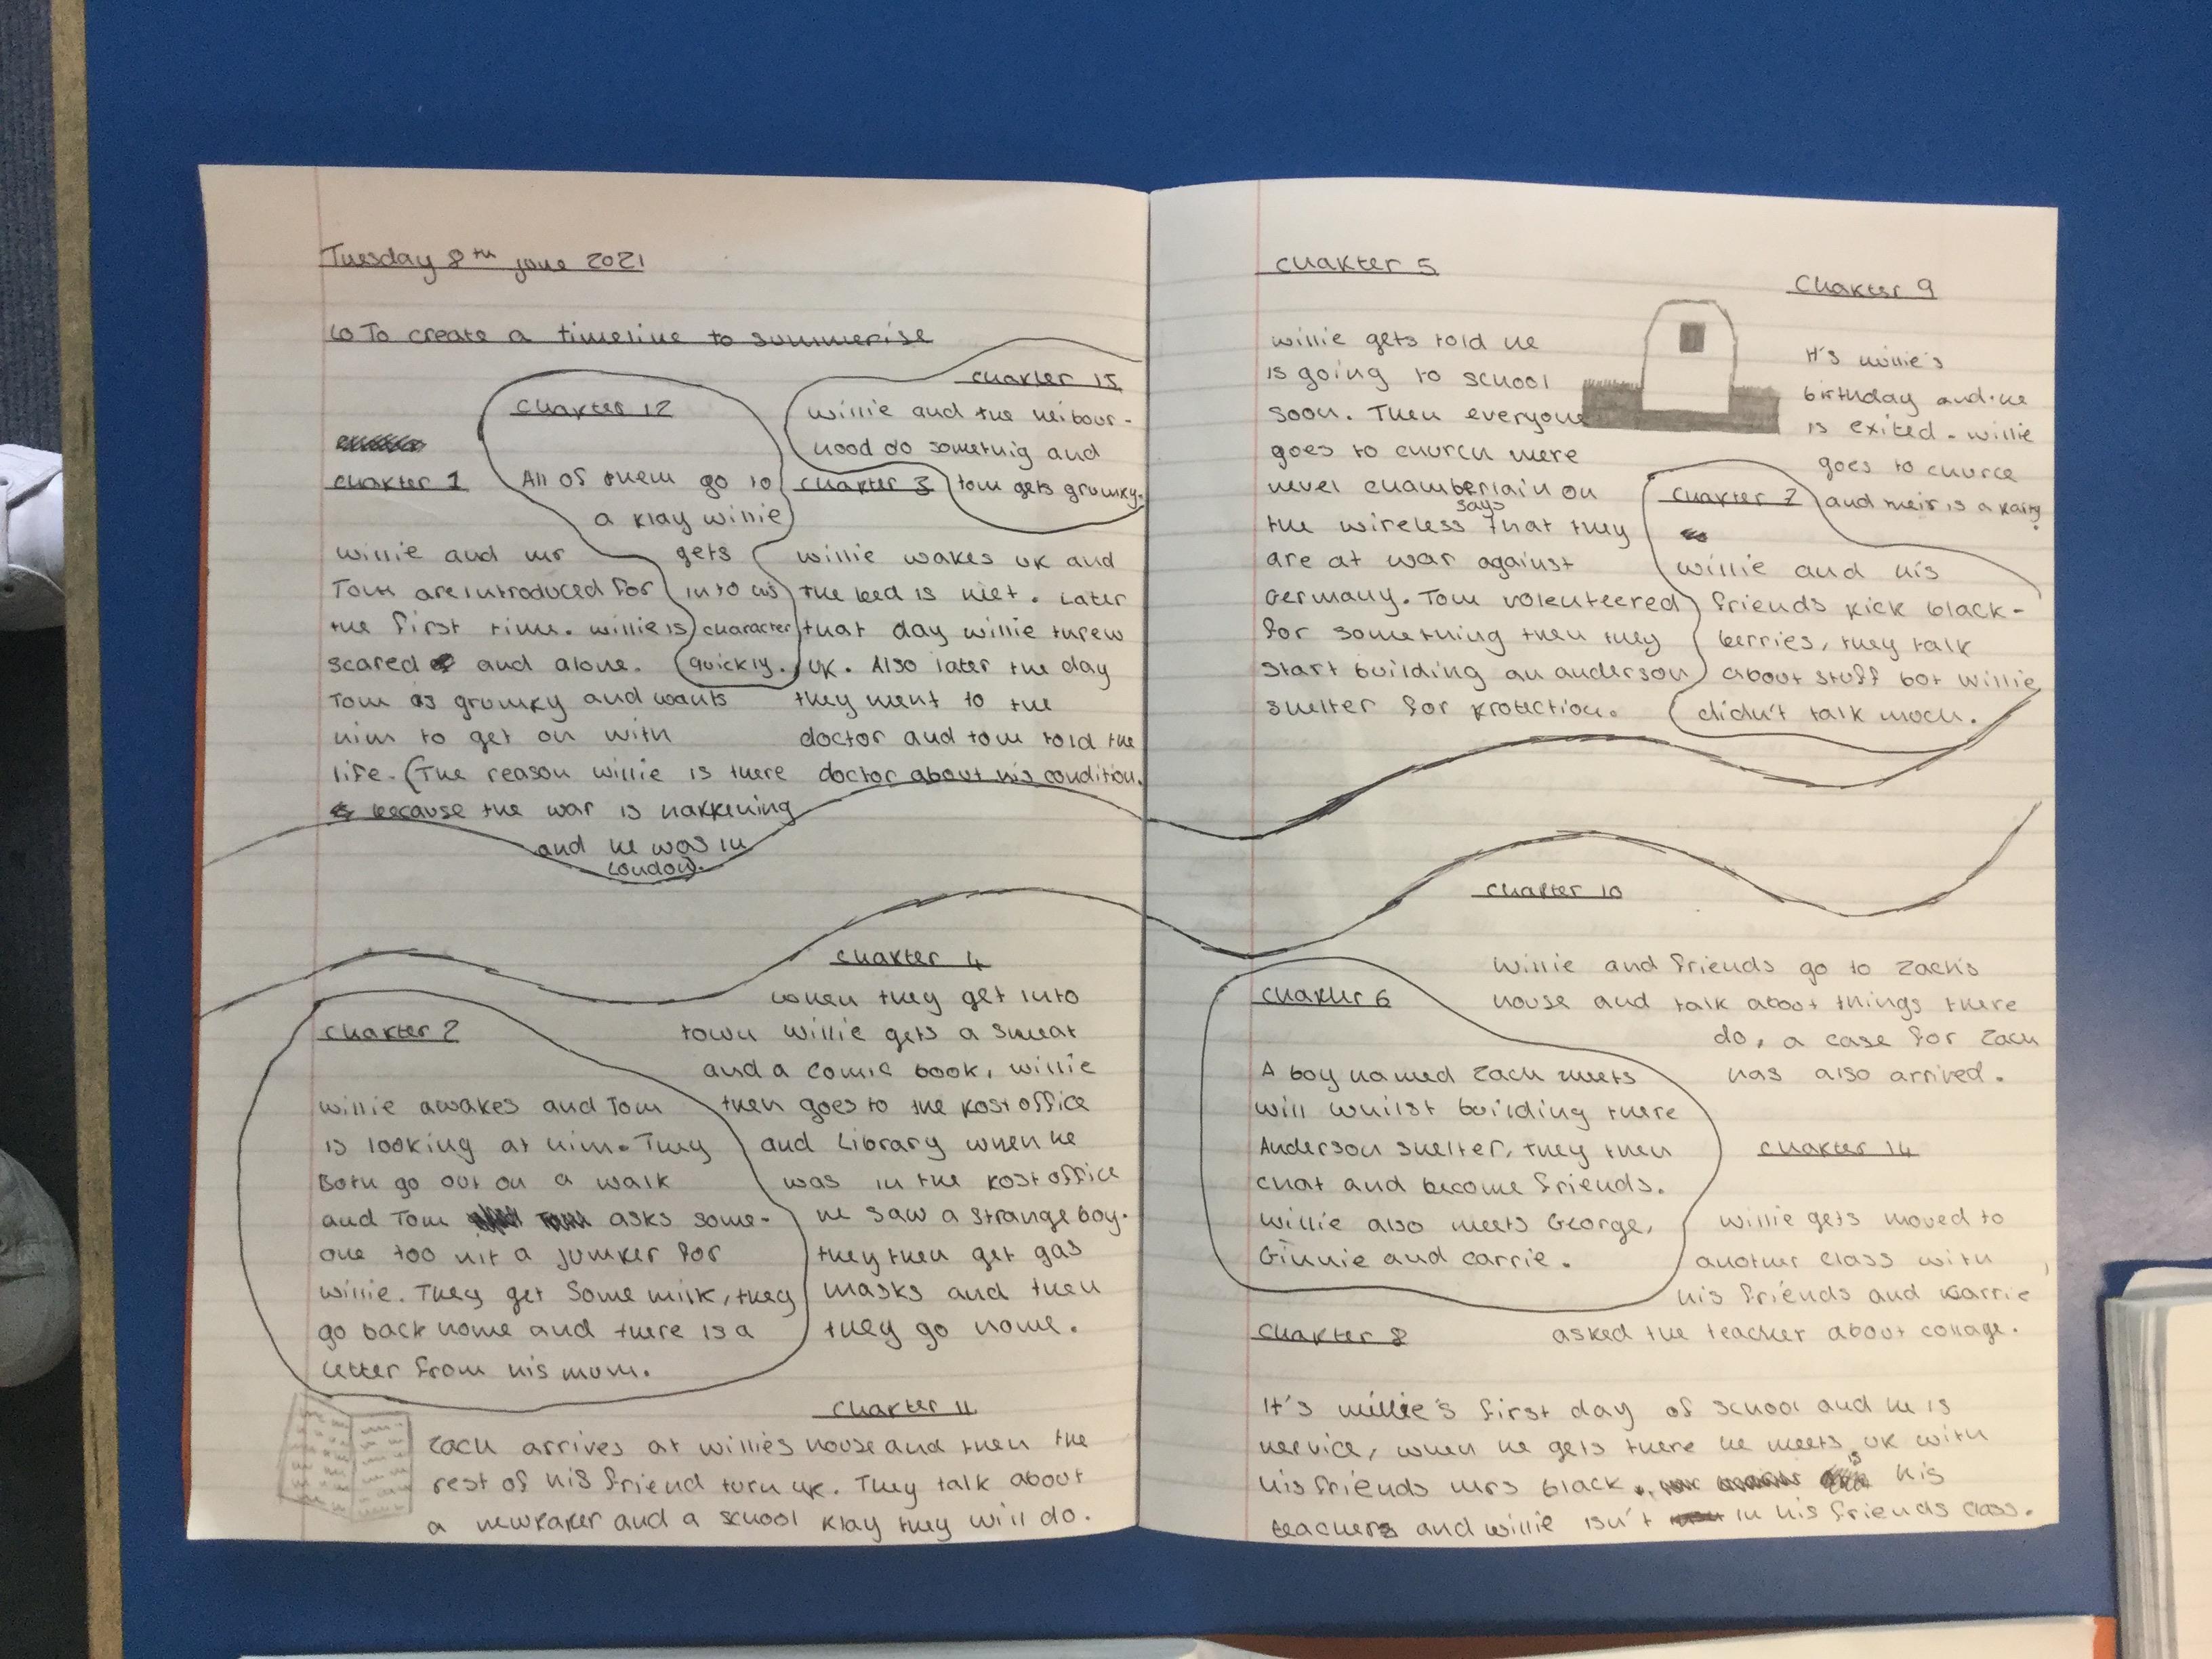 Tuesday 8th june 2021
LO To create a timeline to summerise
chapter 1
willie and mr
Tom are introduced for
the first time. willie is
scared and alone.
Tom is grumpy and wants
him to get on with
life. (The reason willie is there
because the war is happening
and he was in
London).
chapter 12
All of them go to
a play willie
gets
into his
character
quickly.
chapter 15
willie and the neibour-
hood do sometnig and
tom gets grumpy.
chapter 3
willie wakes up and
the bed is wet. Later
that day willie threw
up. Also later the day
they went to the
doctor and tom told the
doctor about his condition.
chapter 2
willie awakes and Tom
is looking at him. They
Both go out on a walk
and Tom asks some-
one too nit a jumper for
willie. They get some milk, they
go back home and there is a
letter from his mum.
chapter 4
when they get into
town willie gets a sweat
and a comic book, willie
then goes to the post office
and Library when he
was in the post office
he saw a strange boy.
they then get gas
masks and then
they go home.
chapter 11
Zach arrives at willies house and then the
rest of his friend turn up. They talk about
a newpaper and a school play they will do.
chapter 5
willie gets told he
is going to school
soon. Then everyone
goes to church were
nevel chamberlain on
the wireless says that they
are at war against
Germany. Tom volenteered
for something then they
start building an anderson
shelter for protection.
Chapter 9
It's willie's
birthday and he
is exited. willie
goes to churce
and their is a party.
chapter 7
willie and his
friends pick black-
berries, they talk
about stuff but willie
didn't talk much.
chapter 10
Willie and friends go to Zach's
house and talk about things there
do, a case for Zach
has also arrived.
chapter 6
A boy named Zach meets
will whilst building there
Anderson shelter, they then
chat and become friends.
willie also meets George,
Ginnie and carrie.
chapter 14
willie gets moved to
another class with
his friends and Karrie
asked the teacher about collage.
chapter 8
It's willie's first day of school and he is
nervice, when he gets there he meets up with
his friends mrs black is his
teachers and willie isn't in his friends class.